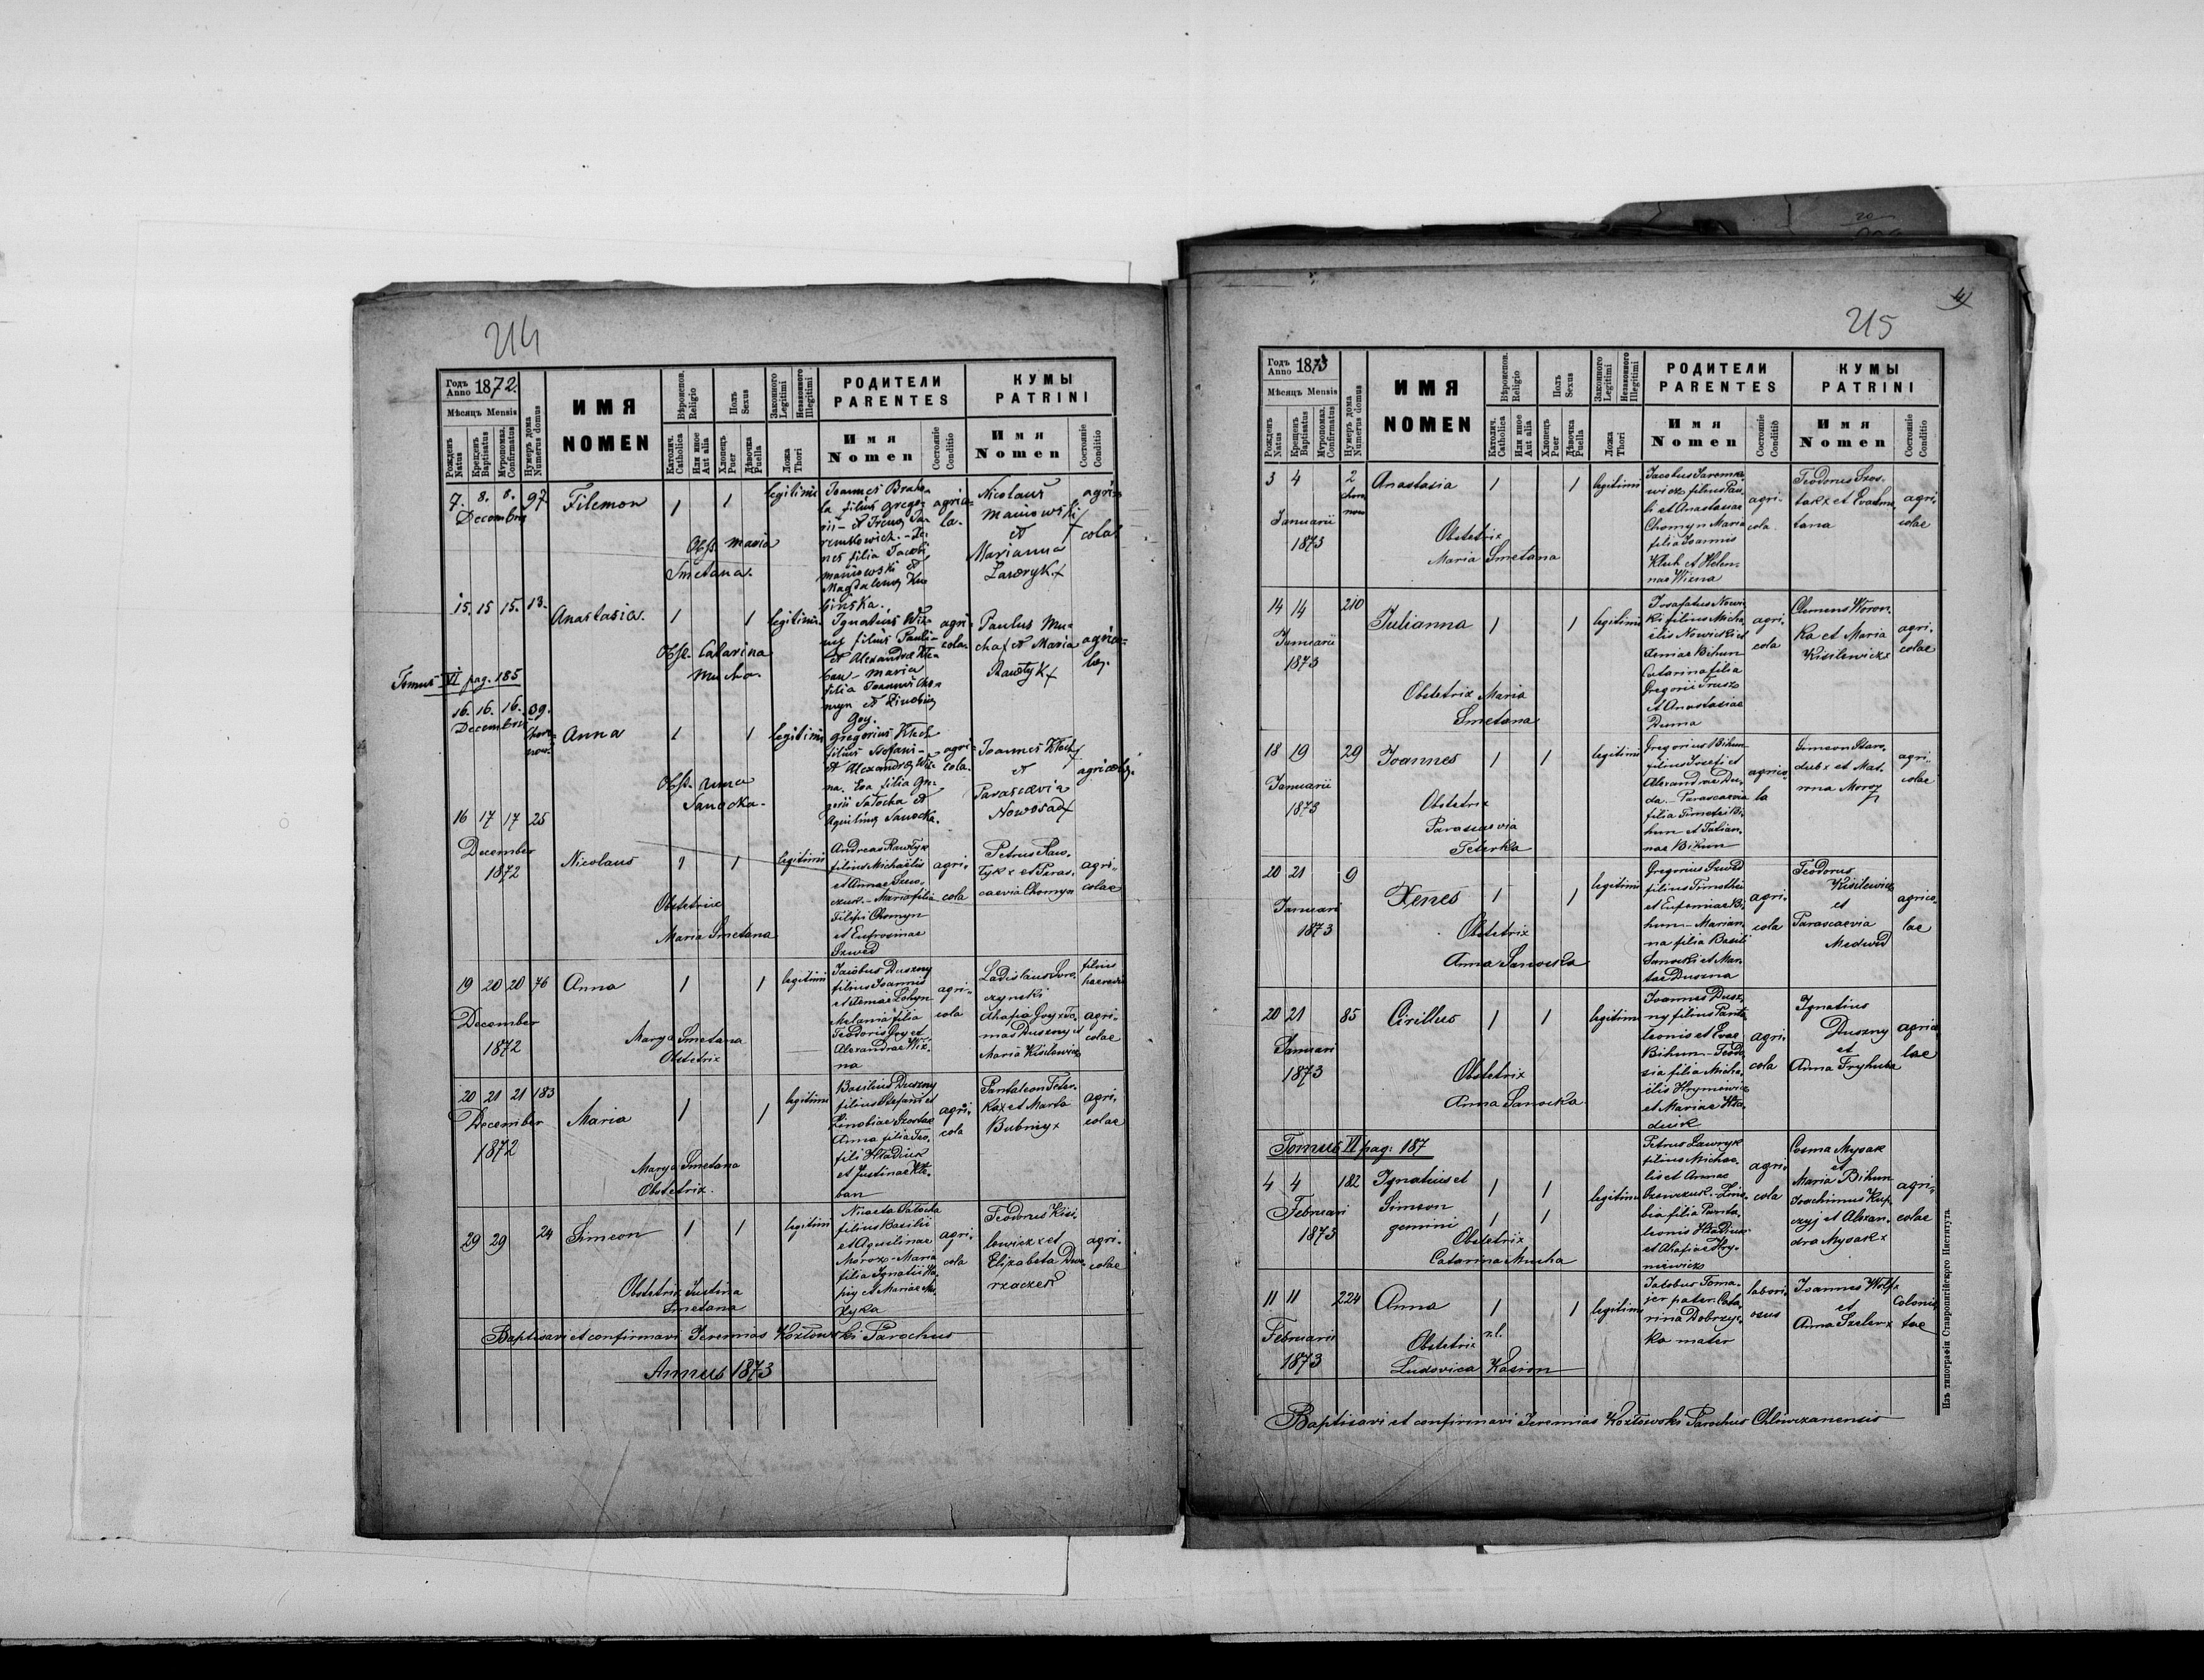 214
Годъ Anno 1872.
Мѣсяцъ Mensis
Рожденъ Natus
Крещенъ Baptisatus
Мѵропомаз. Confirmatus
Нумеръ дома Numerus domus
ИМЯ
NOMEN
Вѣроисповѣд. Religio
Католич. Catholica
Или иное Aut alia
Полъ Sexus
Хлопецъ Puer
Дѣвочка Puella
Законного Legitimi
Незаконного Illegitimi
Ложа Thori
РОДИТЕЛИ
PARENTES
Имя
Nomen
Состояніе Conditio
КУМЫ
PATRINI
Имя
Nomen
Состояніе Conditio
7. 8. 8. 97
Decembris
Filemon
1 1
legitimi
Obst. Maria
Smetana.
filius Gregor
rii - et
nes filia Jacobi
Maniowski et
Magdalena
agrico-
la-
Nicolaus
Maniowski
et
Marianna
Zawryk +
agri-
colae
15. 15 15. 13.
Anastasia.
1 1
legitimi
Obst. Catarina
Mucha.
Ignatius
filius Pauli
et Alexandrae
Maria
filia Joannis Cho-
myn et Zinobia
Goy.
agri-
cola-
Paulus Mu-
cha + et Maria
Rawłyk +
agrico-
lae.
Tomus VI pag. 185
16. 16. 16. 39.
Decembris
Anna
1 1
legitimi
Obst. Anna
Sanocka.
Gregorius Klech
filius Stefani -
et Alexandra Wiz-
na. Eva filia Gri-
gorii Sałocha et
Aquilina Sanocka.
agri-
cola.
Joannes Klech +
et
Parascevia
Nowosad +
agricolae.
16 17 17 25
December
1872
Nicolaus
1 1
legitimi
Obstetrix
Maria Smetana
Andreas Rawłyk
filius Michaëlis
et Annae Szew-
czuk. - Maria filia
Filipi Chomyn
et Eufrosinae
Szwed
agri-
cola
Petrus Raw-
łyk x et Paras-
caevia Chomyn
agri-
colae
19 20 20 76
December
1872
Anna
1 1
legitimi
Marya Smetana
Obstetrix
Jacobus Duszny
filius Joannis
et Annae Lohyn
Melania filia
Teodoris Goy et
Alexandrae Wiz-
na
agri-
cola
Ladislaus
czynski
Ahafia Goy x To-
mas Duszny et
Maria Kisilewicz
filius
agri-
colae
20 21 21 183
December
1872
Maria
1 1
legitimi
Marya Smetana
Obstetrix.
Basilius Duszny
filius Stefani et
Zinobiae Szostak
Anna filia Teo-
fili Hładiuk
et Justinae Kle-
ban
agri-
cola
Pantaleon Teter-
ka x et Marta
Bubniy x
agri-
colae
29 29 24
Simeon
1 1
legitimi
Obstetrix Justina
Smetana
Nicaeta Sałocha
filius Basilii
et Aquilinae
Moroz - Maria
filia Ignatii Ha-
piy et Mariae
agri-
cola
Teodorus Kisi-
lewicz x et
Elizabeta Dwo-
rzaczek
agri-
colae
Baptisavi et confirmavi Jeremias Kozłowski Parochus
Annus 1873
215
Годъ Anno 1873
Мѣсяцъ Mensis
Рожденъ Natus
Крещенъ Baptisatus
Мѵропомаз. Confirmatus
Нумеръ дома Numerus domus
ИМЯ
NOMEN
Вѣроисповѣд. Religio
Католич. Catholica
Или иное Aut alia
Полъ Sexus
Хлопецъ Puer
Дѣвочка Puella
Законного Legitimi
Незаконного Illegitimi
Ложа Thori
РОДИТЕЛИ
PARENTES
Имя
Nomen
Состояніе Conditio
КУМЫ
PATRINI
Имя
Nomen
Состояніе Conditio
3 4 2
Januarii
1873
Anastasia
1 1
legitimi
Obstetrix
Maria Smetana
Jacobus Jaremko-
wicz filius Pau-
li et Anastasiae
Chomyn Maria
filia Joannis
Kluh et Helen-
nae Wizna
agri-
cola
Teodorus Szos-
tak x et Eva
tana
agri-
colae
14 14 210
Januarii
1873
Julianna
1 1
legitimi
Obstetrix Maria
Smetana
Josafatus Nowic-
ki filius Micha-
ëlis Nowicki et
Annae Bihun
Catarina filia
Gregorii Trusz
et Anastasiae
Duma
agri-
cola
Clemens Woron-
ka et Maria
Kisilewicz x
agri-
colae
18 19 29
Januarii
1873
Joannes
1 1
legitimi
Obstetrix
Parascevia
Teterka
Gregorius Bihun
filius Josefi et
Alexandrae Du-
da. - Parascaevia
filia Timotei Bi-
hun et Tatian-
nae Bihun
agrico-
la
Simeon Staro-
dub x et Mat-
rona Moroz
agri-
colae
20 21 9
Januari
1873
Xenes
1 1
legitimi
Obstetrix
Anna Sanocka
Gregorius Szwed
filius Timothei
et Eufemiae Bi-
hun - Marian-
na filia Basili
Sanocki et Mar-
tae Duszna
agri-
cola
Teodorus
Kisilewicz
et
Parascaevia
Medwid
agrico-
lae
20 21 85
Januari
1873
Cirillus
1 1
legitimi
Obstetrix
Anna Sanocka
Joannes Dusz-
ny filius Panta-
leonis et Evae
Bihun - Teodo-
sia filia Micha-
ëlis Hryniewicz
et Mariae Hła-
diuk
agri-
cola
Ignatius
Duszny
et
Anna Fryhuba
agrico-
lae
Tomus VI pag. 187
4 4 182
Februari
1873
Ignatius et
Simeon
gemini
1 1
1 1
legitimi
Obstetrix
Catarina Mucha
Petrus Ławryk
filius Michae-
lis et Annae
Szewczuk - Zino-
bia filia Panta-
leonis Hładiuk
et Ahafiae Hry-
niewicz
agri-
cola
Cosma Mysak
et
Maria Bihun
Joachimus Kup-
czyj et Alexan-
dra Mysak x
agri-
colae
11 11 224
Februarii
1873
Anna
1 1
r.l.
legitimi
Obstetrix
Ludovica Kasion
Jacobus Toma-
jer pater. Cata-
rina Dobrzyc-
ka mater
labori-
osus
Joannes Wolf x
et
Anna Szeler x
Colonis-
tae
Baptisavi et confirmavi Jeremias Kozłowski Parochus Chlewczanensis
Изъ типографіи Ставропигійского Института.